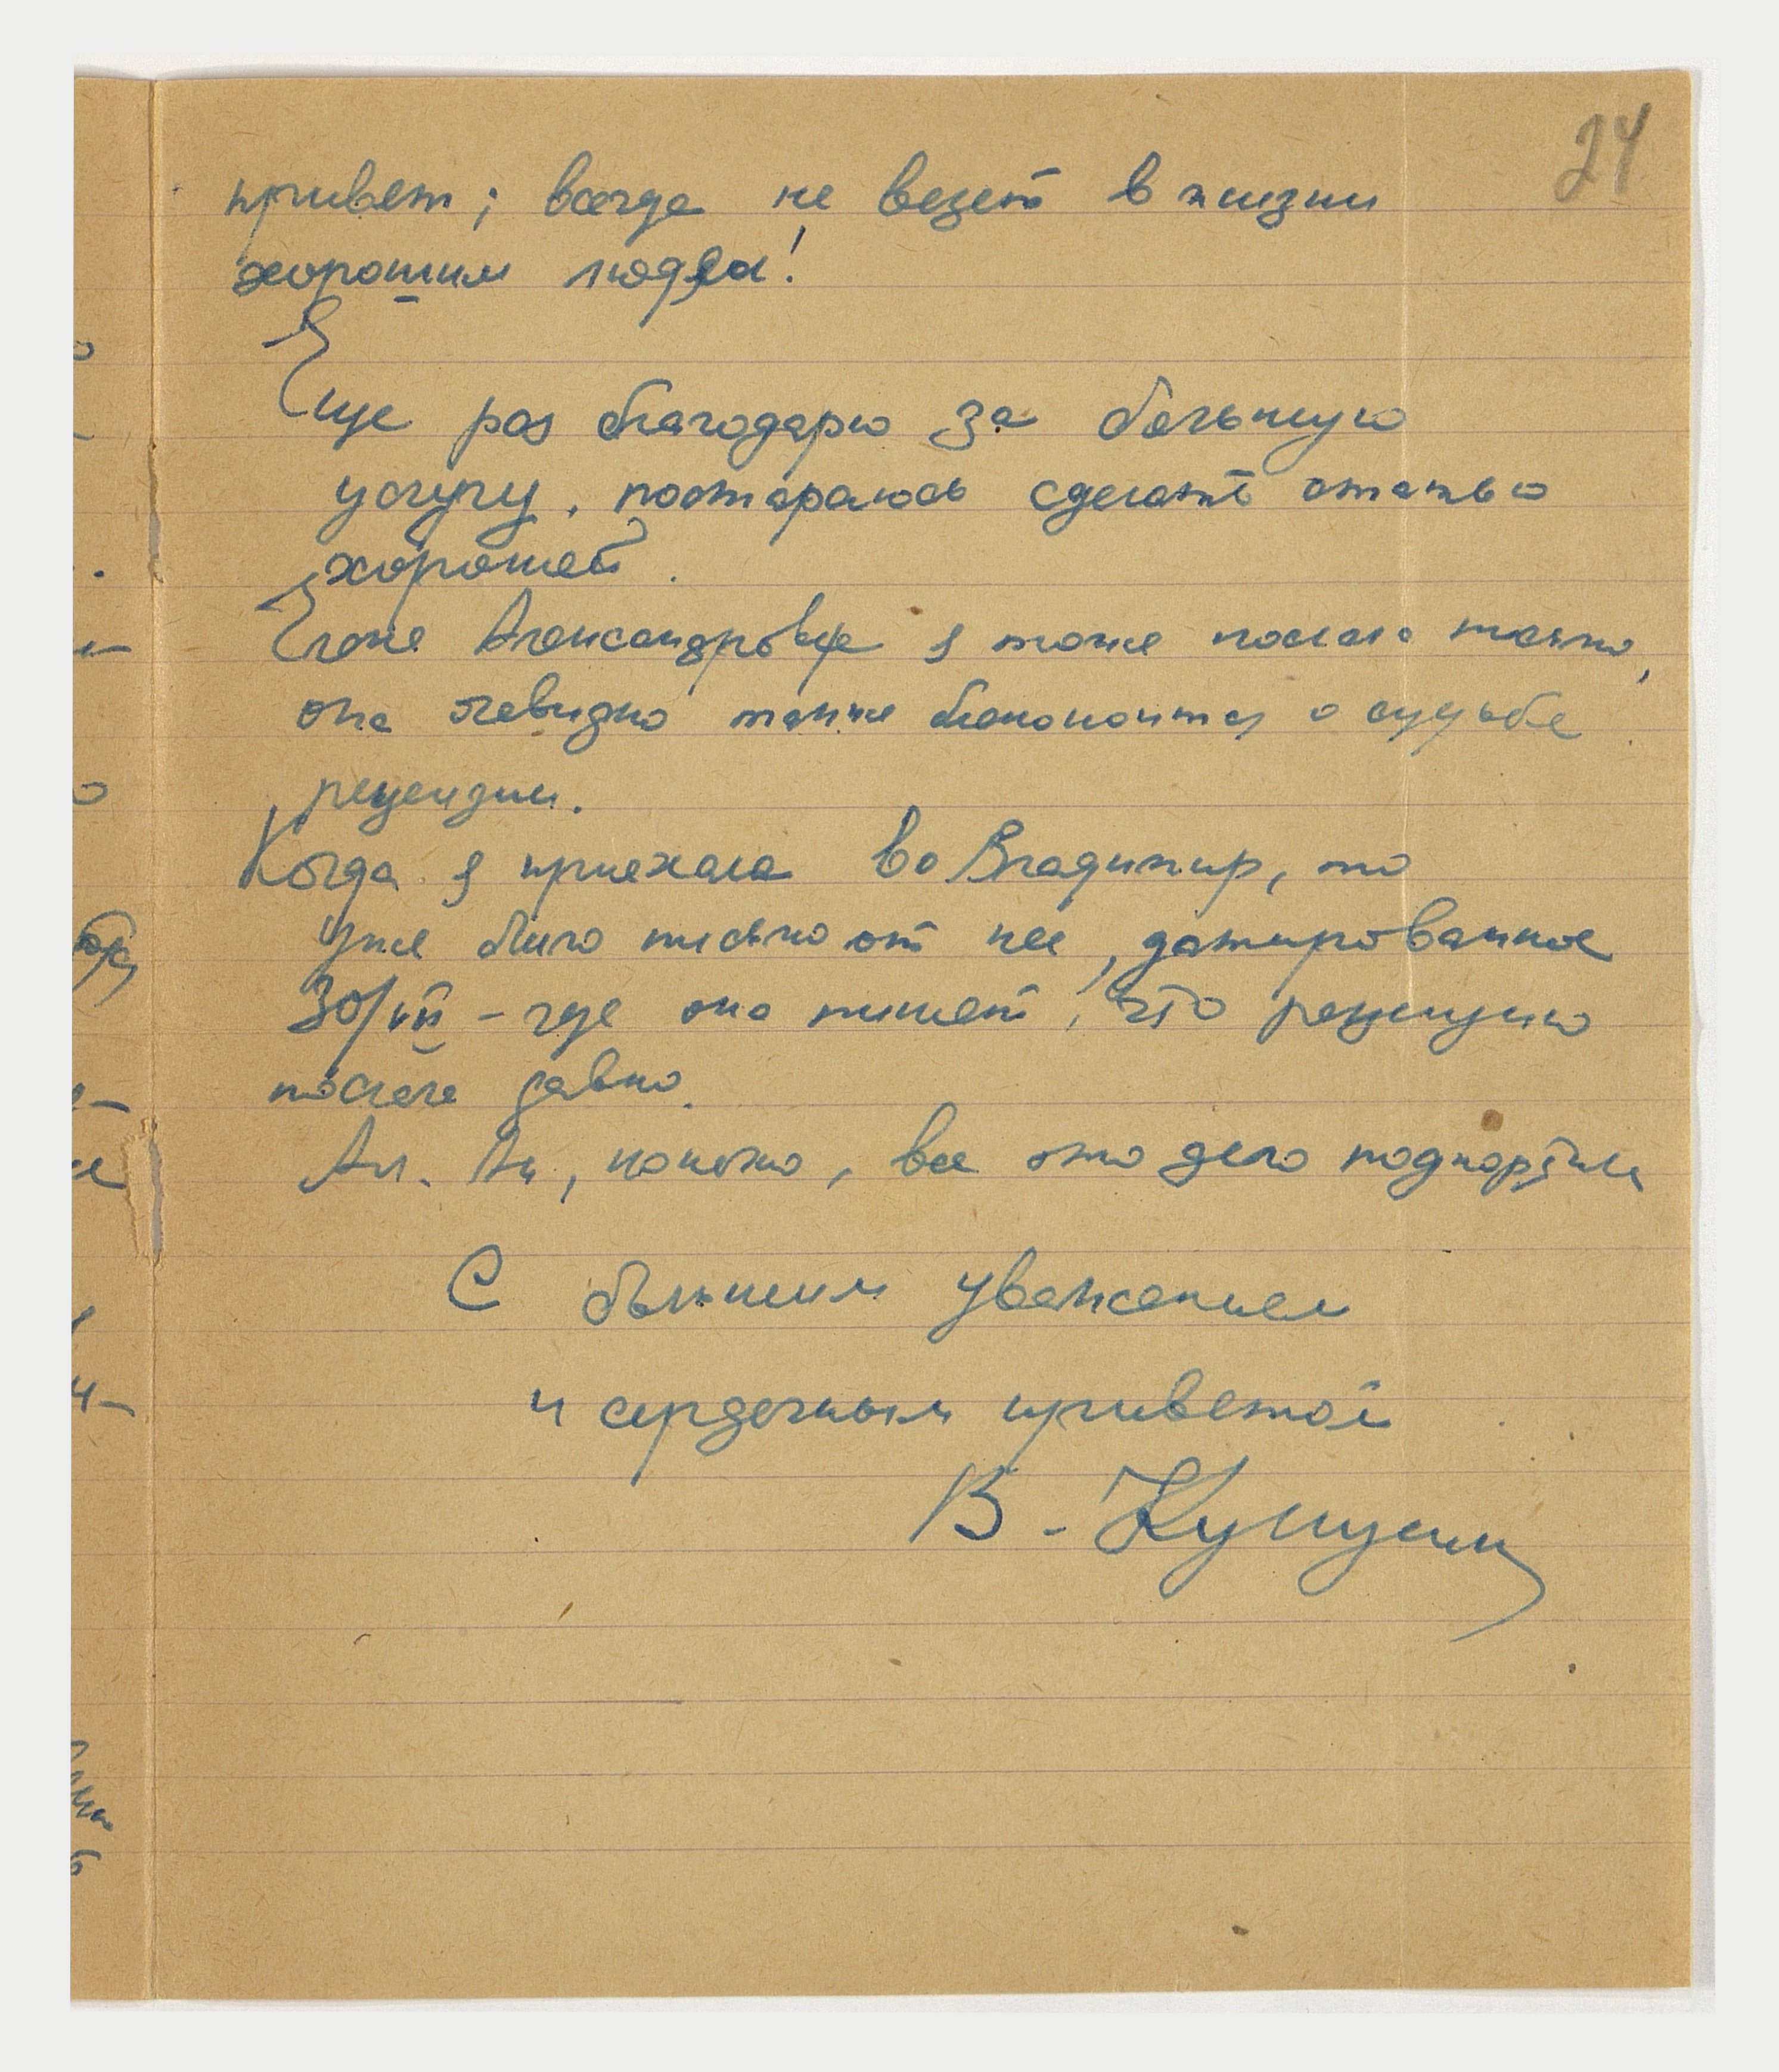 24
привет; всегда не везет в жизни
хорошим людям!
Еще раз благодарю за большую
услугу, постараюсь сделать статью
хорошей.
Елене Александровне я тоже послала письмо,
она очевидно также беспокоится о судьбе
рецензии.
Когда я приехала во Владимир, то
уже было письмо от нее, датированное
30/VII – где она пишет, что рецензию
послала давно.
Ал. Ан, конечно, все это дело подпортила
С большим уважением
и сердечным приветом
В.